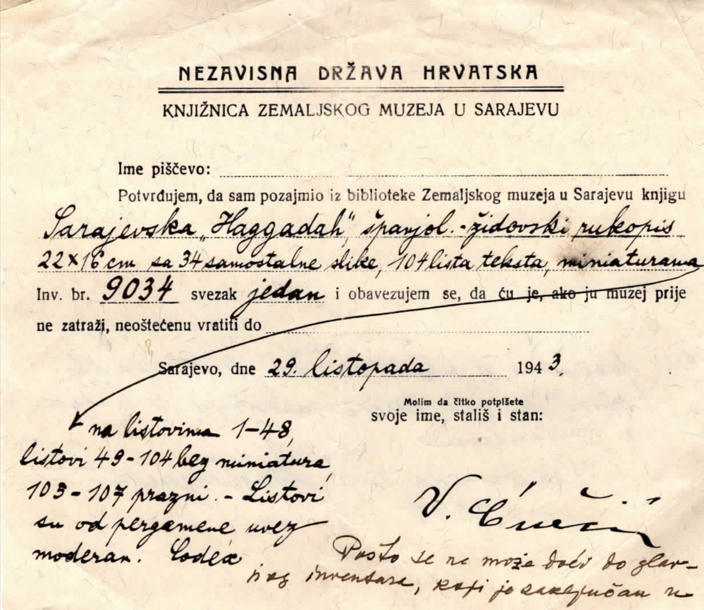 NEZAVISNA DRŽAVA HRVATSKA
KNJIŽNICA ZEMALJSKOG MUZEJA U SARAJEVU
Ime piščevo:
Potvrđujem, da sam pozajmio iz biblioteke Zemaljskog muzeja u Sarajevu knjigu
Sarajevska „Haggadah", španjol.-židovski rukopis
22×16 cm sa 34 samostalne slike, 104 lista teksta, miniaturama
Inv. br. 9034 svezak jedan i obavezujem se, da ću je, ako ju muzej prije
ne zatraži, neoštećenu vratiti do
Sarajevo, dne 29. listopada 1943.
Molim da čitko potpišete
svoje ime, stališ i stan:
na listovima 1-48,
listovi 49-104 bez miniatura,
103-107 prazni. - Listovi
su od pergamene uvez
moderan. Codex
V. Ćurčić
Pošto se ne može doći do glav-
nog inventara, koji je zaključan u